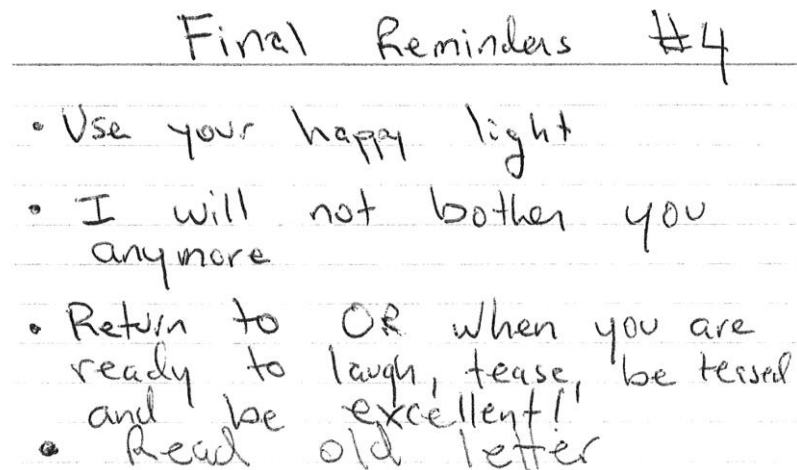 Final Reminders #4
• Use your happy light
• I will not bother you
anymore
• Return to OR when you are
ready to laugh, tease, be teased
and be excellent!
• Read old letter